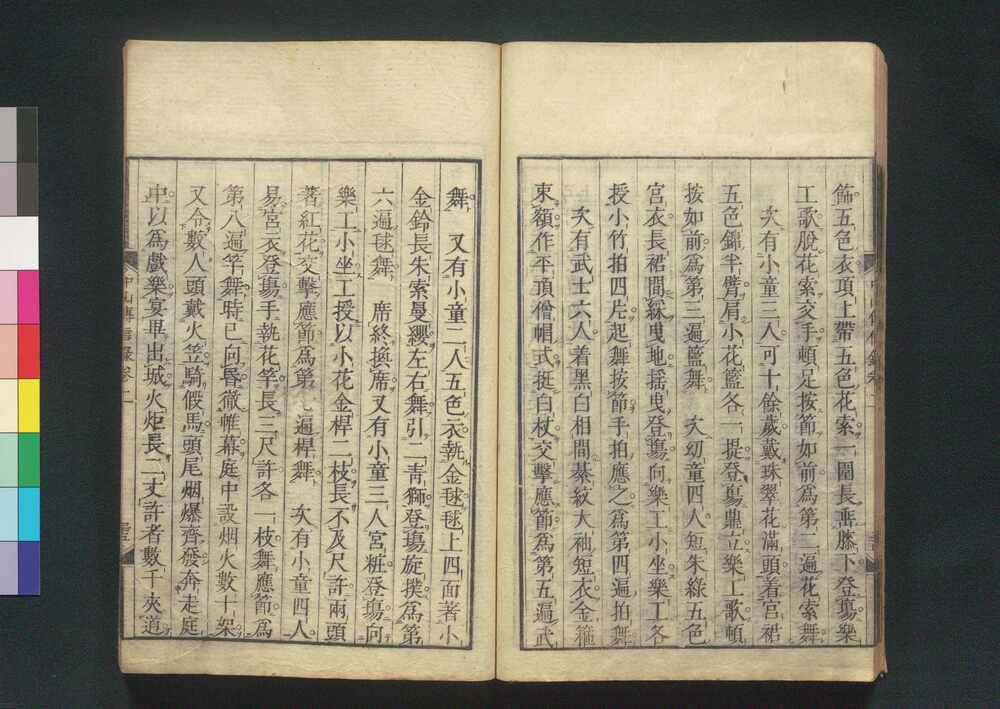 飾五色衣項上帶五色花索一圍長垂膝下登塲樂
工歌脫花索交手頓足按節如前爲第二遍花索舞
次有小童三人可十餘歲戴珠翠花滿頭着宮裙
五色錦半臂肩小花籃各一提登塲鼎立樂工歌頓
按如前爲第三遍籃舞　次幼童四人短朱綠五色
宮衣長裙間綵曳地搖曳登塲向樂工小坐樂工各
授小竹拍四片起舞按節手拍應之爲第四遍拍舞
次有武士六人着黑白相間綦紋大袖短衣金箍
束額作平頂僧帽式挺白杖交擊應節爲第五遍武
舞　又有小童二人五色衣執金毬毬上四面著小
金鈴長朱索曼纓左右舞引二青獅登塲旋撲爲第
六遍毬舞　席終換席又有小童三人宮粧登塲向
樂工小坐工授以小花金桿二枝長不及尺許兩頭
著紅花交擊應節爲第七遍桿舞　次有小童四人
易宮衣登塲手執花竿長三尺許各一枝舞應節爲
第八遍竿舞時已向昏徹帷幕庭中設烟火數十架
又令數人頭戴火笠騎假馬頭尾烟爆齊發奔走庭
中以爲戲樂宴畢出城火炬長二丈許者數千夾道
中山傳信錄卷二